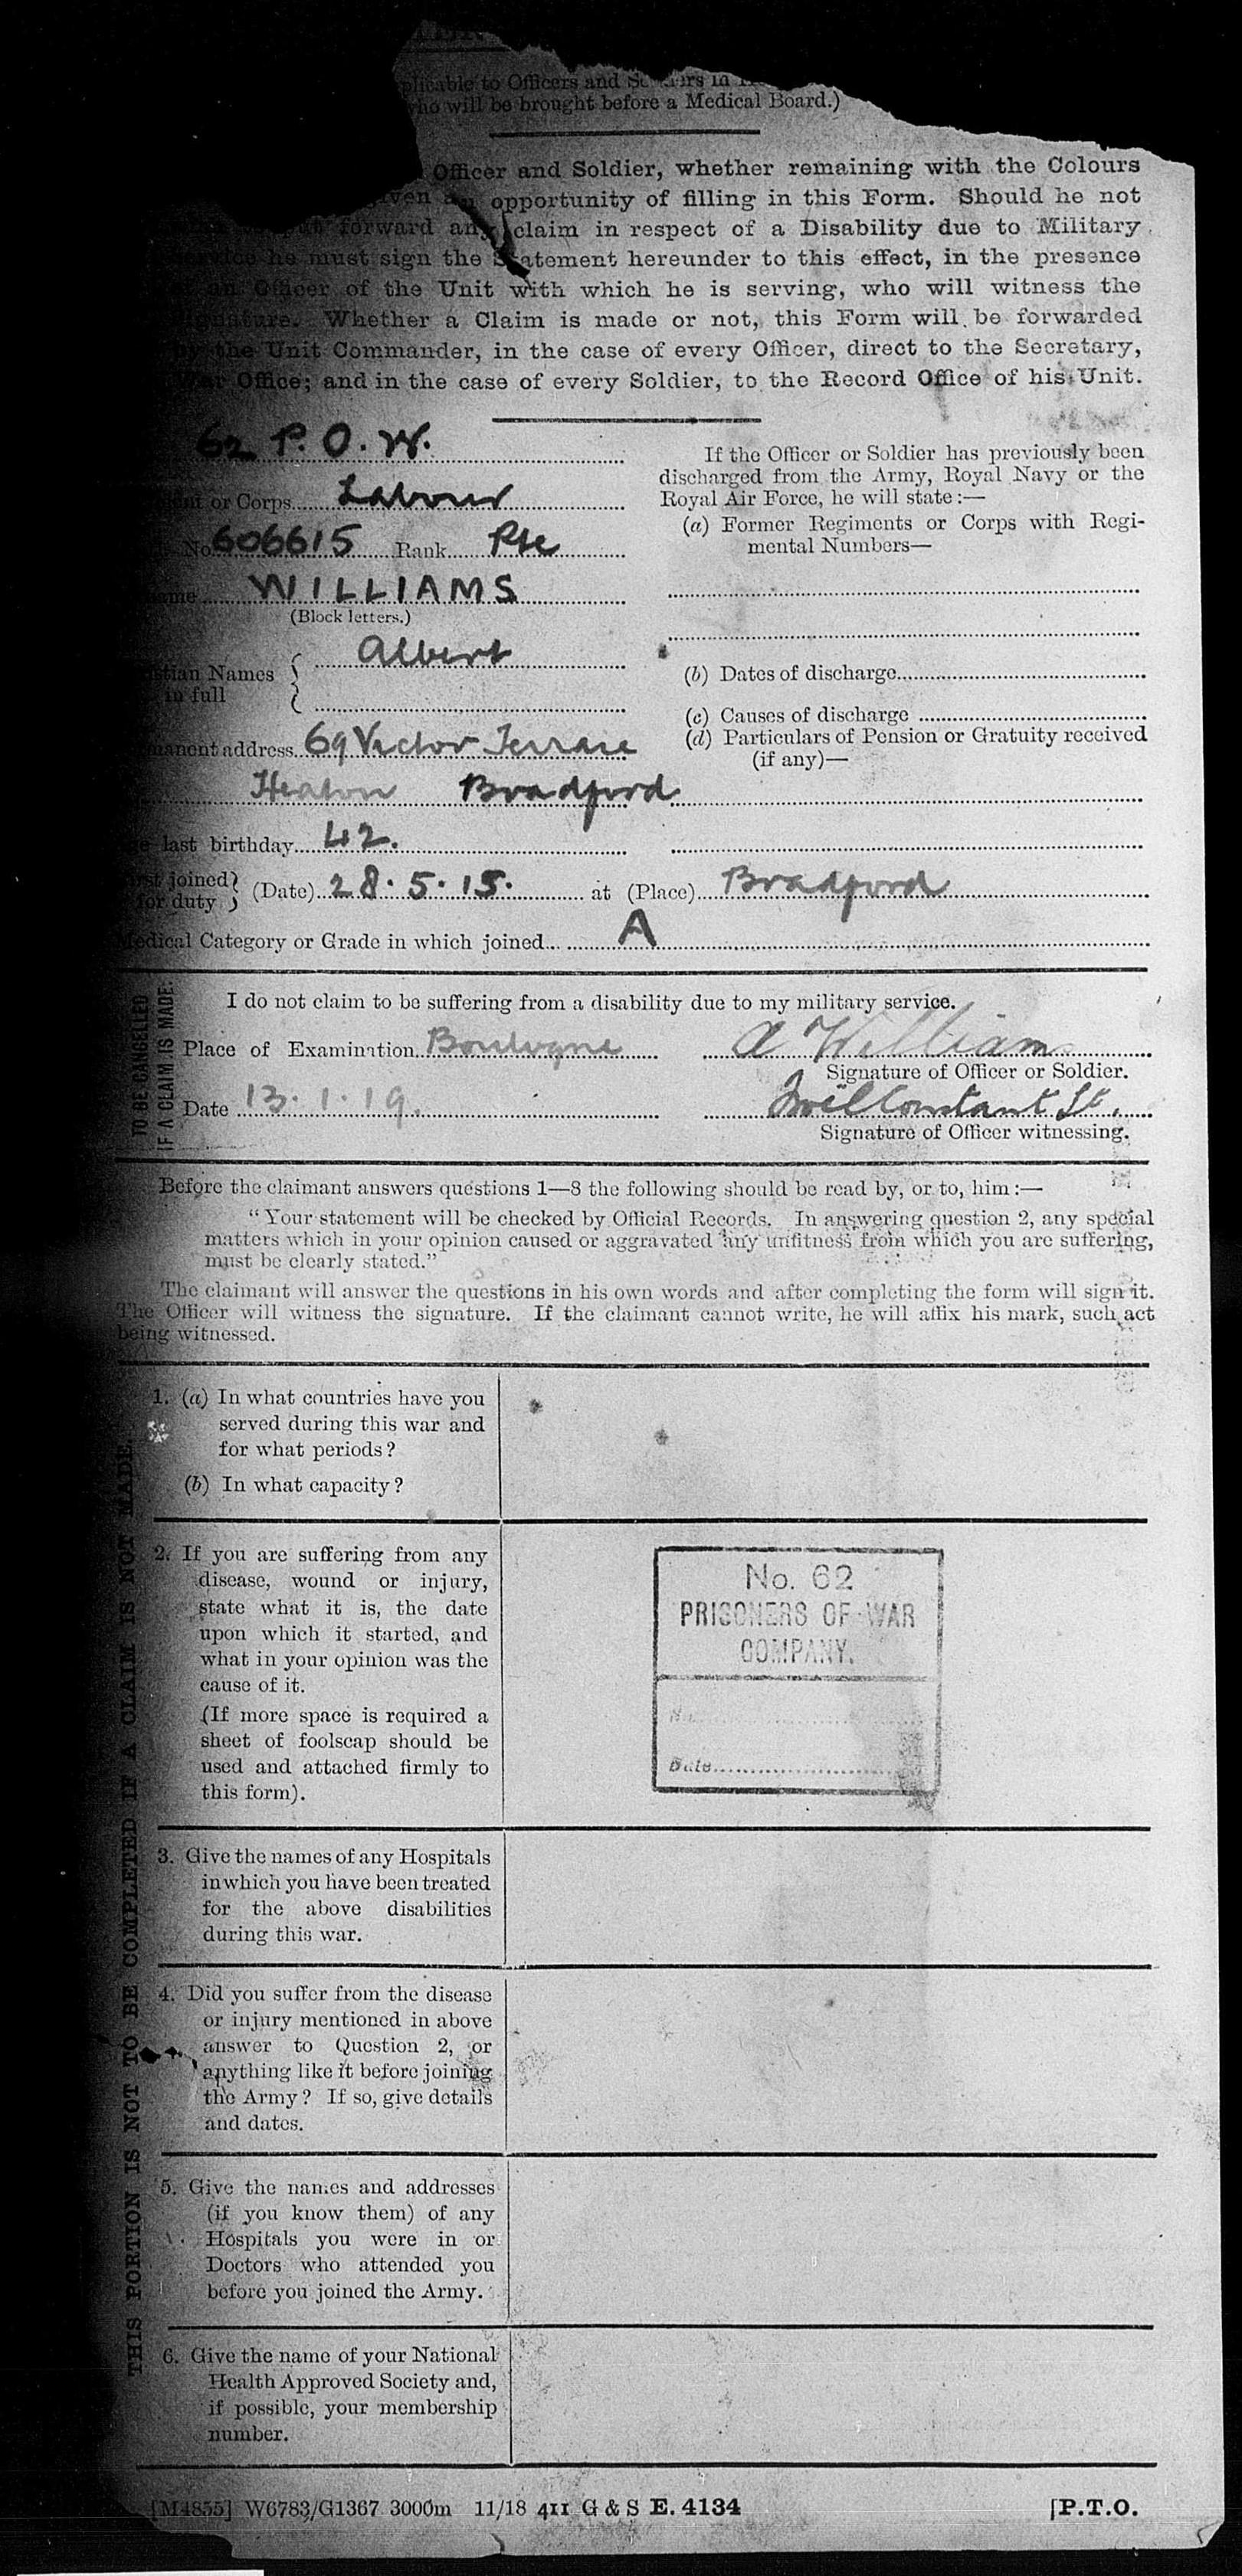 plicable to Officers and
who will be brought before a Medical Board.)
Officer and Soldier, whether remaining with the Colours
given an opportunity of filling in this Form. Should he not
put forward any claim in respect of a Disability due to Military
Service he must sign the Statement hereunder to this effect, in the presence
of an Officer of the Unit with which he is serving, who will witness the
signature. Whether a Claim is made or not, this Form will be forwarded
by the Unit Commander, in the case of every Officer, direct to the Secretary,
War Office; and in the case of every Soldier, to the Record Office of his Unit.
62 P. O. W.
ment or Corps Labour
No. 606615 Rank Pte
name WILLIAMS
(Block letters.)
stian Names in full Albert
manent address 69 Victor Terrace
Heaton Bradford
last birthday 42.
first joined for duty (Date) 28.5.15. at (Place) Bradford
Medical Category or Grade in which joined A
If the Officer or Soldier has previously been
discharged from the Army, Royal Navy or the
Royal Air Force, he will state:—
(a) Former Regiments or Corps with Regi-
mental Numbers—
(b) Dates of discharge
(c) Causes of discharge
(d) Particulars of Pension or Gratuity received
(if any)—
TO BE CANCELLED
IF A CLAIM IS MADE.
I do not claim to be suffering from a disability due to my military service.
Place of Examination Boulogne A Williams
Signature of Officer or Soldier.
Date 13.1.19. Constant Lt.
Signature of Officer witnessing.
Before the claimant answers questions 1—8 the following should be read by, or to, him:—
"Your statement will be checked by Official Records. In answering question 2, any special
matters which in your opinion caused or aggravated any unfitness from which you are suffering,
must be clearly stated."
The claimant will answer the questions in his own words and after completing the form will sign it.
The Officer will witness the signature. If the claimant cannot write, he will affix his mark, such act
being witnessed.
THIS PORTION IS NOT TO BE COMPLETED IF A CLAIM IS NOT MADE.
1. (a) In what countries have you
served during this war and
for what periods?
(b) In what capacity?
2. If you are suffering from any
disease, wound or injury,
state what it is, the date
upon which it started, and
what in your opinion was the
cause of it.
(If more space is required a
sheet of foolscap should be
used and attached firmly to
this form).
No. 62
PRISONERS OF WAR
COMPANY.
No.
Date
3. Give the names of any Hospitals
in which you have been treated
for the above disabilities
during this war.
4. Did you suffer from the disease
or injury mentioned in above
answer to Question 2, or
anything like it before joining
the Army? If so, give details
and dates.
5. Give the names and addresses
(if you know them) of any
Hospitals you were in or
Doctors who attended you
before you joined the Army.
6. Give the name of your National
Health Approved Society and,
if possible, your membership
number.
[M4855] W6783/G1367 3000m 11/18 411 G & S E. 4134 [P.T.O.